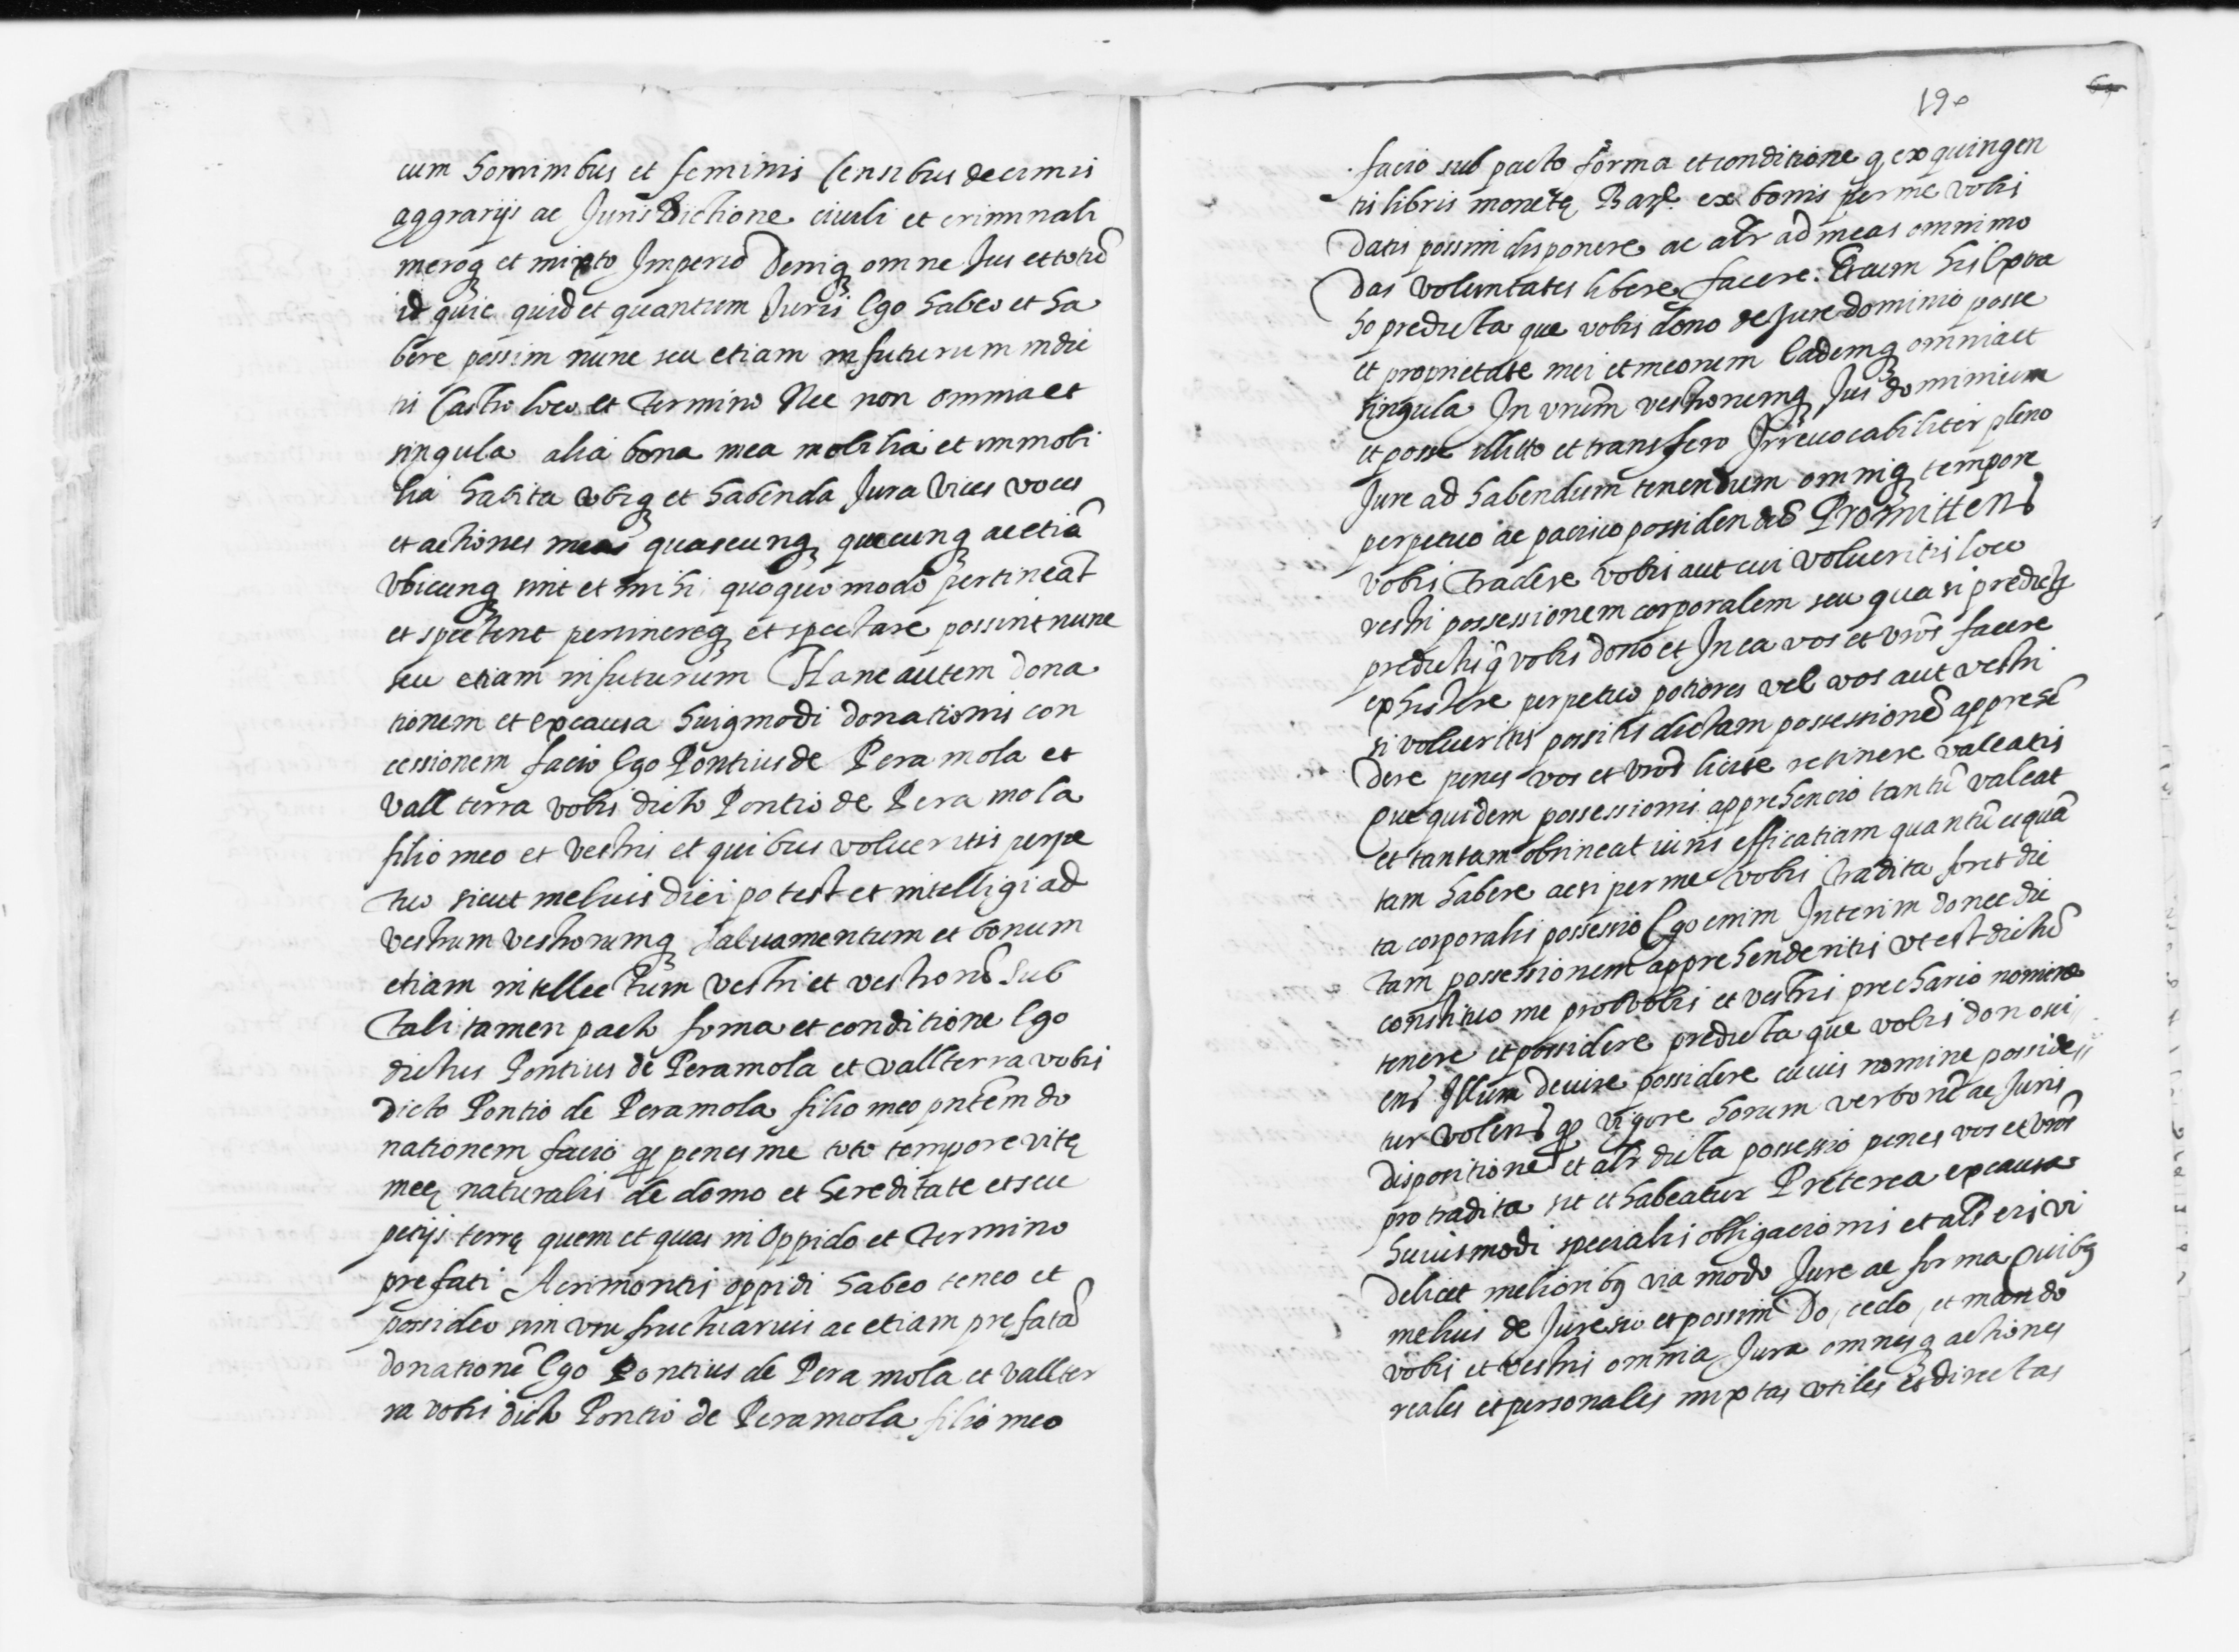 cum hominibus et feminis Censibus decimis
aggrarijs ac Juris Dictione ciuili et criminali
meroq et mixto Imperio Deniq omne Jus et totũ
id quic quid et quantum Juris Ego habeo et ha
bere possim nunc seu etiam in futurum in dic
tis Castro loco et Termino Nec non omnia et
singula alia bona mea mobilia et immobi
lia habita vbiq et habenda Jura Vices voces
et actiones meas quascunq quecunq ac etiã
Vbicunq sint et mihi quoquo modo pertineãt
et spectent pertinereq et spectare possint nunc
seu etiam in futurum Hanc autem dona
tionem et ex causa huigmodi donationis con
cessionem facio Ego Pontius de Pera mola et
Vall terra vobis dicto Pontio de Pera mola
filio meo et Vestris et quibus volueritis perpe
tuo sicut melius dici potest et intelligi ad
Vestrum vestrorumq saluamentum et bonum
etiam intellectum Vestri et vestrorũ Sub
Tali tamen pacto forma et conditione Ego
dictus Pontius de Peramola et vallterra vobis
dicto Pontio de Peramola filio meo pñtem do
nationem facio q penes me toto tempore vitę
meę naturalis de domo et hereditate et seu
petijs terrę quem et quas in Oppido et Termino
prefati Acrimontis oppidi habeo teneo et
possideo sim vsu fructuarius ac etiam prefatã
donationẽ Ego Pontius de Pera mola et vallter
ra vobis dicto Pontio de Peramola filio meo
190
facio sub pacto forma et conditione q ex quingen
tis libris monetę Barſ. ex bonis per me vobis
Datis possim disponere ac alr ad meas omnimo
Das voluntates libere facere. Et cum his Extra
ho predicta que vobis dono de Jure dominio posse
et proprietate mei et meorum Eademq omnia et
singula In vrum̃ vestrorumq Jus dominium
et posse Mitto et transfero Irreuocabiliter pleno
Jure ad habendum tenendum omniq tempore
perpetuo ac pacifico possidendũ Promittens
vobis Tradere vobis aut cui volueritis loco
vestri possessionem corporalem seu quasi predictę
predictisq̃ vobis dono et In ea vos et vrõs facere
existere perpetuo potiores vel vos aut vestri
si volueritis possitis dictam possessionẽ apprehẽ
Dere penes vos et vrõs licite retinere valeatis
Que quidem possessionis apprehencio tantũ valeat
et tantam obtineat iuris efficatiam quantũ et quã
tam habere ac si per me vobis Tradita foret dic
ta corporalis possessio Ego enim Interim donec dic
Tam possessionem apprehenderitis vt est dictũ
constituo me pro vobis et vestris prechario nomine
tenere et possidere predicta que vobis dono sci
ens Illum Deuire possidere cuius nomine posside
tur Volens q vigore horum verborũ ac Juris
Dispositione et alr dicta possessio penes vos et vrõs
pro tradita sit et habeatur Preterea ex causa
huiusmodi specialis obligacionis et alr eis vi
Delicet melioribq via modo Jure ac forma Quibq
melius de Jure sio et possim Do, cedo, et mando
vobis et Vestris omnia Jura omnesq actiones
reales et personales mixtas vtiles et directas